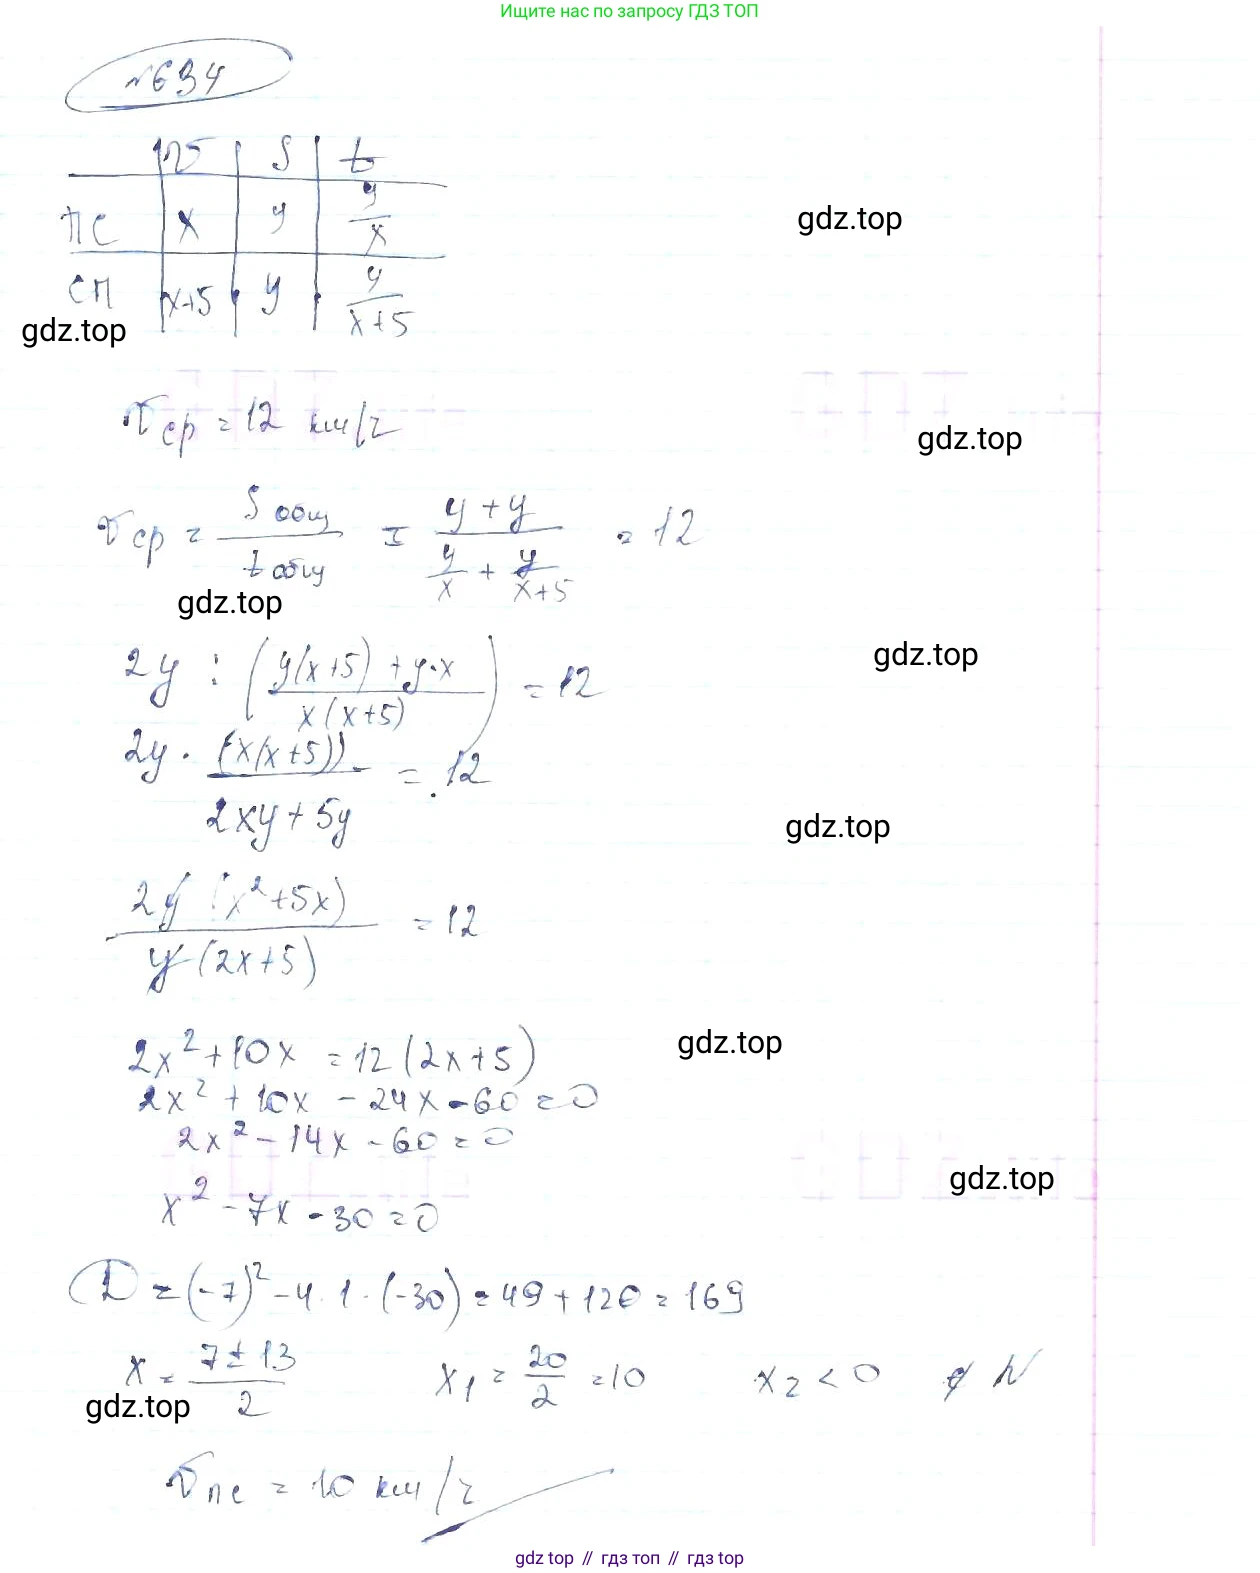 Ищите нас по запросу ГДЗ ТОП
№634
v S t
ПС x y y/x
gdz.top
СП x+5 y y/(x+5)
gdz.top
vср = 12 км/ч
gdz.top
vср = Sобщ/tобщ = (y+y)/(y/x + y/(x+5)) = 12
gdz.top
2y : ((y(x+5)+y·x)/(x(x+5))) = 12
gdz.top
2y · (x(x+5))/(2xy+5y) = 12
gdz.top
2y(x²+5x)/(y(2x+5)) = 12
2x²+10x = 12(2x+5)
gdz.top
2x²+10x-24x-60=0
2x²-14x-60=0
gdz.top
x²-7x-30=0
D = (-7)²-4·1·(-30)=49+120=169
x = (7±13)/2 x₁ = 20/2 = 10 x₂ < 0 ∉ N
gdz.top
vпс = 10 км/ч
gdz.top // гдз топ // gdz.top